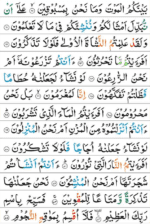 بَيْنَكُمُ الْمَوْتَ وَمَا نَحْنُ بِمَسْبُوْقِيْنَ ۝ عَلٰٓى اَنْ
نُّبَدِّلَ اَمْثَالَكُمْ وَنُنْشِئَكُمْ فِيْ مَا لَا تَعْلَمُوْنَ ۝
وَلَقَدْ عَلِمْتُمُ النَّشْاَةَ الْاُوْلٰى فَلَوْلَا تَذَكَّرُوْنَ ۝
اَفَرَءَيْتُمْ مَّا تَحْرُثُوْنَ ۝ ءَاَنْتُمْ تَزْرَعُوْنَهٗٓ اَمْ
نَحْنُ الزّٰرِعُوْنَ ۝ لَوْ نَشَآءُ لَجَعَلْنٰهُ حُطَامًا
فَظَلْتُمْ تَفَكَّهُوْنَ ۝ اِنَّا لَمُغْرَمُوْنَ ۝ بَلْ نَحْنُ
مَحْرُوْمُوْنَ ۝ اَفَرَءَيْتُمُ الْمَآءَ الَّذِيْ تَشْرَبُوْنَ ۝
ءَاَنْتُمْ اَنْزَلْتُمُوْهُ مِنَ الْمُزْنِ اَمْ نَحْنُ الْمُنْزِلُوْنَ ۝
لَوْ نَشَآءُ جَعَلْنٰهُ اُجَاجًا فَلَوْلَا تَشْكُرُوْنَ ۝
اَفَرَءَيْتُمُ النَّارَ الَّتِيْ تُوْرُوْنَ ۝ ءَاَنْتُمْ اَنْشَاْتُمْ
شَجَرَتَهَآ اَمْ نَحْنُ الْمُنْشِـُٔوْنَ ۝ نَحْنُ جَعَلْنٰهَا
تَذْكِرَةً وَّمَتَاعًا لِّلْمُقْوِيْنَ ۝ فَسَبِّحْ بِاسْمِ
رَبِّكَ الْعَظِيْمِ ۝ فَلَآ اُقْسِمُ بِمَوٰقِعِ النُّجُوْمِ ۝